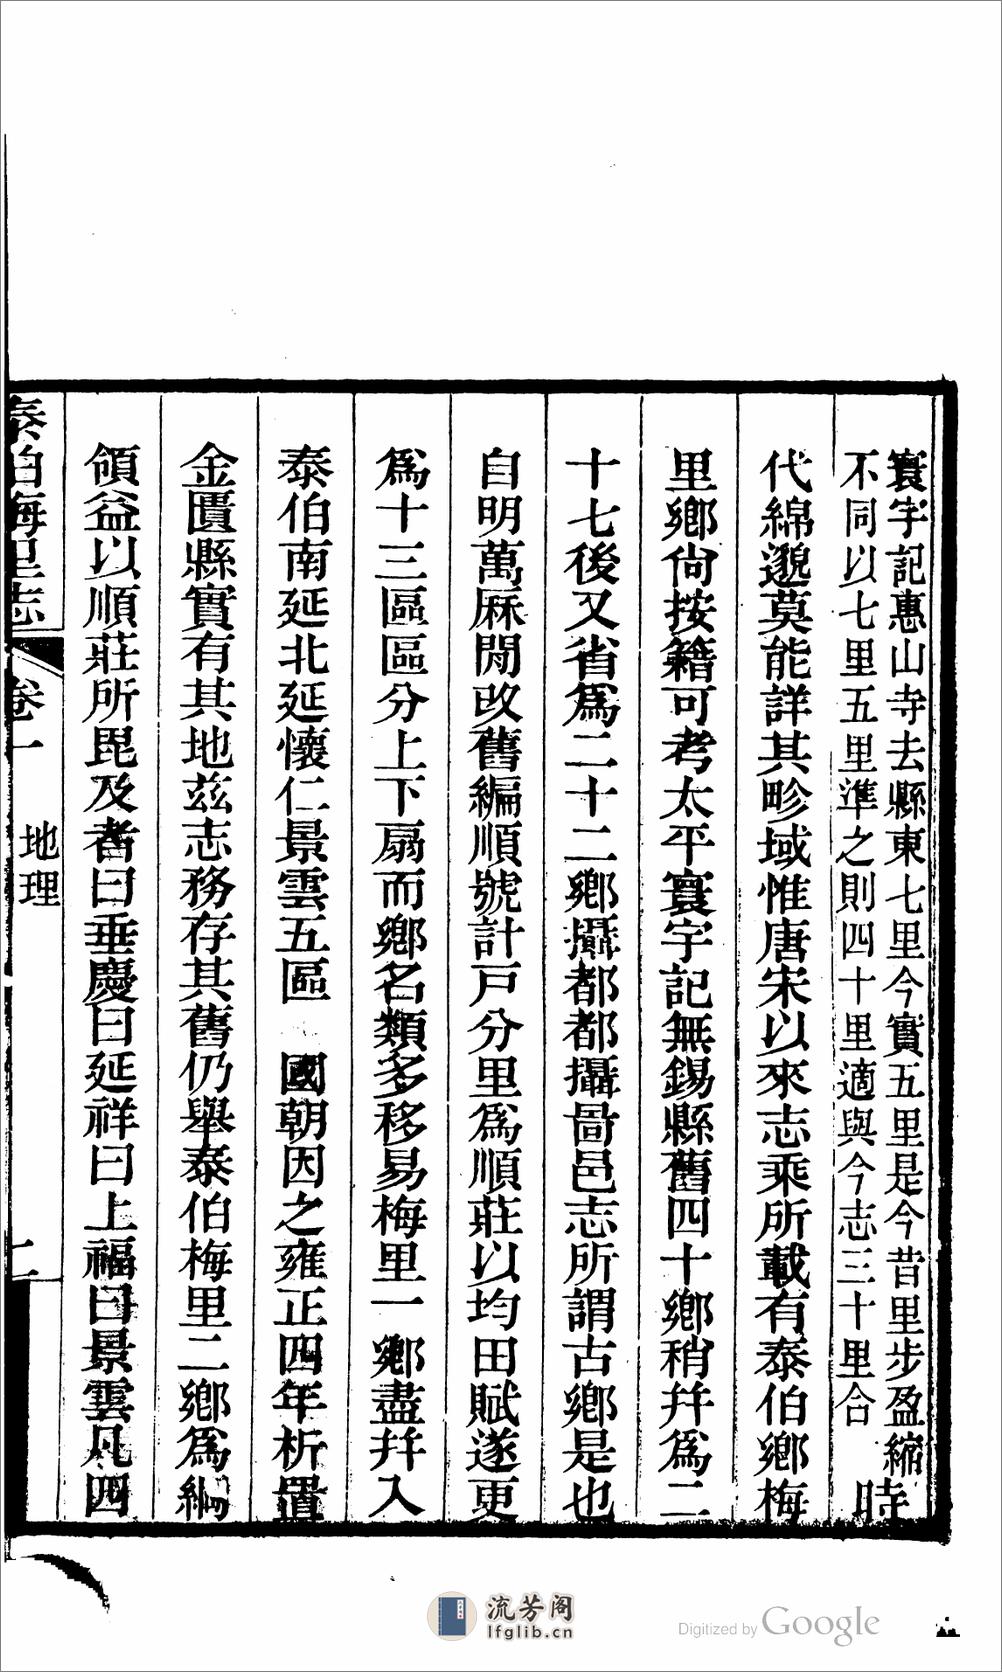 寰宇記惠山寺去縣東七里今實五里是今昔里步盈縮
不同以七里五里準之則四十里適與今志三十里合
時
代綿邈莫能詳其畛域惟唐宋以來志乘所載有泰伯鄉梅
里鄉尙按籍可考太平寰宇記無錫縣舊四十鄉稍幷爲二
十七後又省爲二十二鄉攝都都攝啚邑志所謂古鄉是也
自明萬厤閒改舊編順號計戸分里爲順莊以均田賦遂更
爲十三區區分上下扇而鄉名類多移易梅里一鄉盡幷入
泰伯南延北延懷仁景雲五區　國朝因之雍正四年析置
金匱縣實有其地茲志務存其舊仍舉泰伯梅里二鄉爲綱
領益以順莊所毘及者曰垂慶曰延祥曰上福曰景雲凡四
泰伯梅里志
卷一
地理
二
流芳阁
lfglib.cn
Digitized by Google